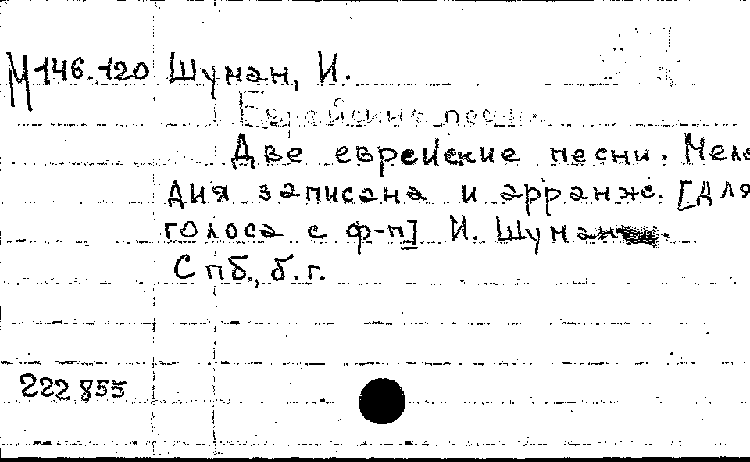 М 146.120 Шуман, И.
Еврейские песн
Две еврейские песни. Мело
дия записана и арранж. [для
голоса с ф-п] И. Шуман
Спб., б.г.
222 855